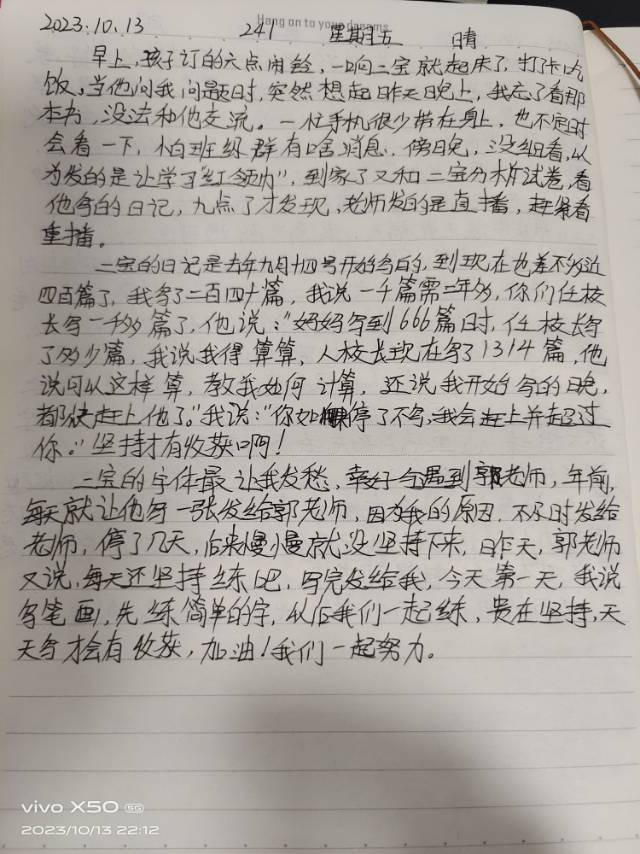 Hang on to your dreams
2023.10.13 241 星期五 晴
早上,孩子订的六点闹铃,一响二宝就起床了,打卡吃
饭,当他问我问题时,突然想起昨天晚上,我忘了看那
本书,没法和他交流。一忙手机很少带在身上,也不定时
会看一下,怕班级群有啥消息,傍晚,没细看,以
为发的是让学习"红领巾",到家了又和二宝分析试卷,看
他写的日记,九点了才发现,老师发的是直播,赶紧看
重播。
二宝的日记是去年九月十四号开始写的,到现在也差不多近
四百篇了,我写了二百四十篇,我说一千篇需二年多,你们任校
长写一千多篇了,他说:"妈妈写到666篇时,任校长写
了多少篇,我说我得算算,人校长现在写了1314篇,他
说可以这样算,教我如何计算,还说我开始写的晚,
都快赶上他了。"我说:"你如果停了不写,我会赶上并超过
你。"坚持才有收获啊!
二宝的字体最让我发愁,幸好与遇到郭老师,年前,
每天就让他写一张发给郭老师,因为我的原因,不及时发给
老师,停了几天,后来慢慢就没坚持下来,昨天,郭老师
又说,每天还坚持练吧,写完发给我,今天第一天,我说
写笔画,先练简单的字,以后我们一起练,贵在坚持,天
天写才会有收获,加油!我们一起努力。
vivo X50 5G
2023/10/13 22:12